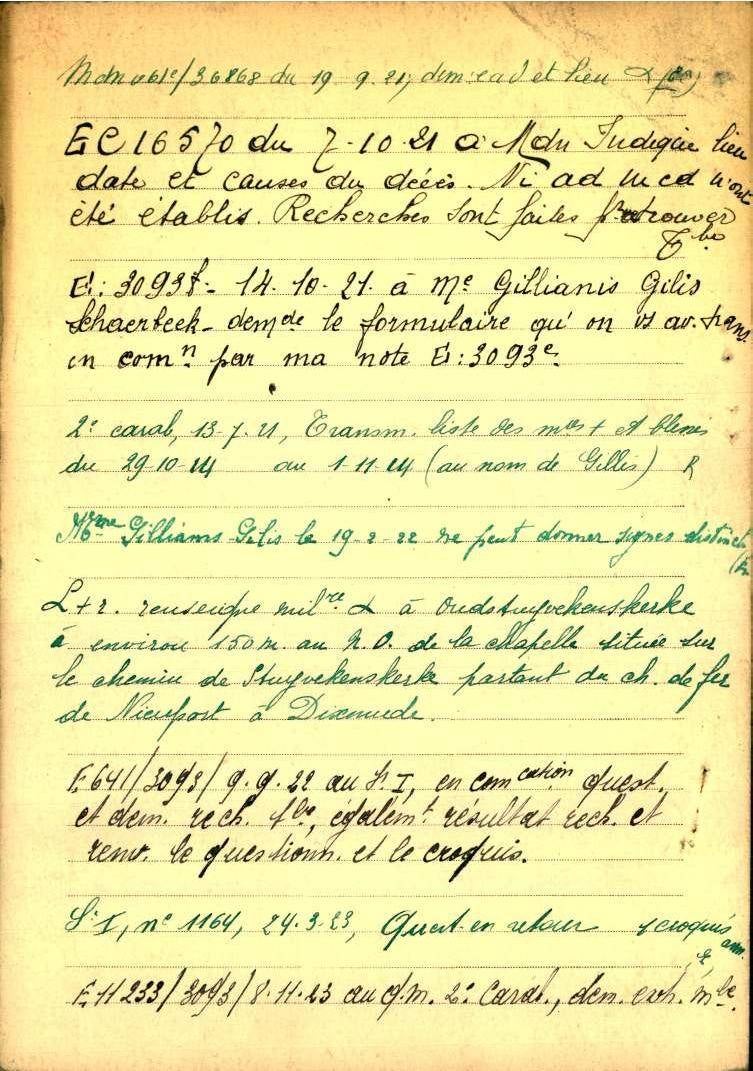 du 19-9-21, dem ad et lieu
EC 16570 du 7-10-21 à Mdn Indique lieu
date et causes du décès. Ni ad ni cd n'ont
été établis. Recherches sont faites pr retrouver
Tbe
EI: 3093f - 14-10-21 à Me Gillianis Gilis
Schaerbeek - demde le formulaire qu'on vs av. trans.
en comn par ma note EI: 3093e.
2e carab, 13-7-21, Transm. liste des mts + et blessés
du 29-10-14 au 1-11-14 (au nom de Gillis) R
Mme Gilliams-Gelis le 19-2-22 ne peut donner signes distinct.
L + r. renseigne milre à Oudstuyvekenskerke
à environ 150 m. au N.O. de la chapelle située sur
le chemin de Stuyvekenskerke partant du ch. de fer
de Nieuport à Dixmude.
E 641/3093/ 9.9.22 au S. I, en comcation quest.
et dem. rech. tbe, égalemt résultat rech. et
renv. le questionn. et le croquis.
S. I, no 1164, 24-3-23, Quest. en retour + croquis
ann.
E 11233/3093/8.11.23 au q.m. 2e Carab., dem. exh. mle.